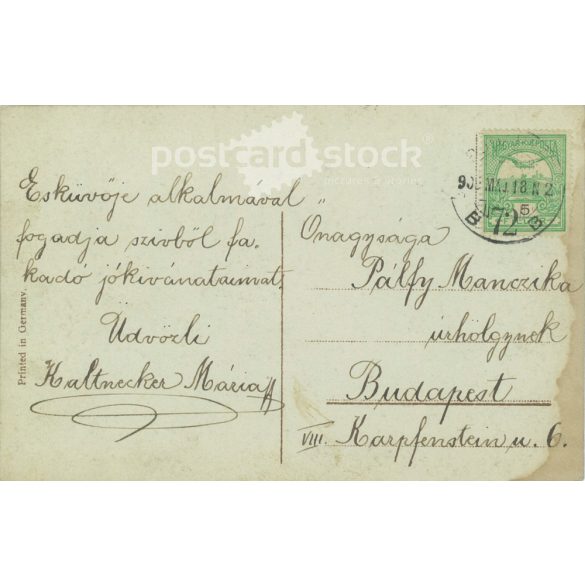 postcard stock
pictures & stories
Esküvője alkalmával
fogadja szivből fa-
kadó jókivánataimat.
Üdvözli
Kaltnecker Mária
Printed in Germany.
Őnagysága
Pálfy Manczika
úrhölgynek
Budapest
VIII. Karpfenstein u. 6.
MAGYAR KIR. POSTA
5
MÁJ 18 N 2
72
B B